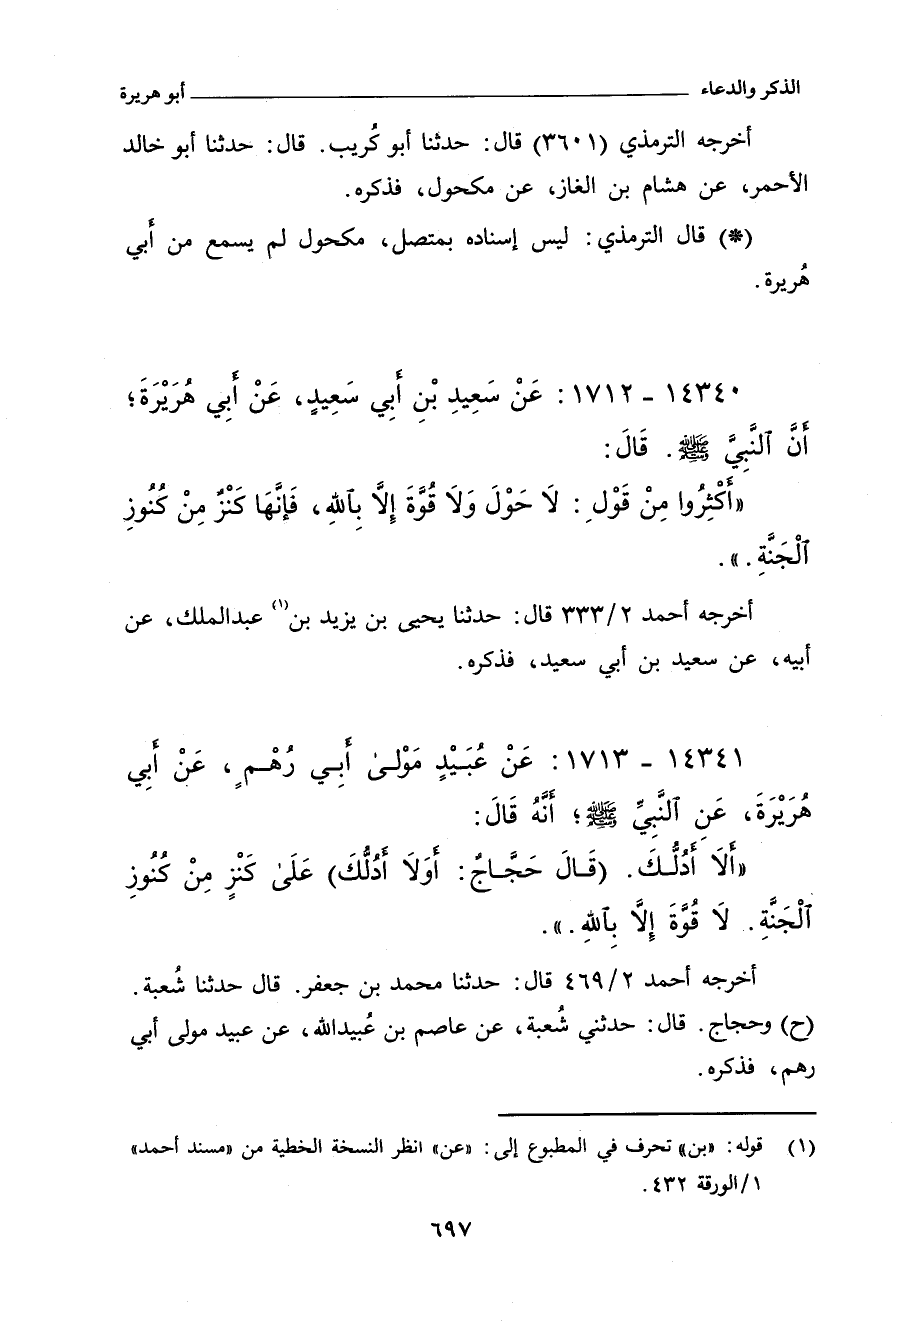 الذكر والدعاء ــــــــــــــــــــــــــــــ أبو هريرة
أخرجه الترمذي (٣٦٠١) قال: حدثنا أبو كُريب. قال: حدثنا أبو خالد
الأحمر، عن هشام بن الغاز، عن مكحول، فذكره.
(*) قال الترمذي: ليس إسناده بمتصل، مكحول لم يسمع من أَبي
هُريرة.
١٤٣٤٠ - ١٧١٢: عَنْ سَعِيدِ بْنِ أَبِي سَعِيدٍ، عَنْ أَبِي هُرَيْرَةَ؛
أَنَّ ٱلنَّبِيَّ ﷺ. قَالَ:
«أَكْثِرُوا مِنْ قَوْلِ: لَا حَوْلَ وَلَا قُوَّةَ إِلَّا بِٱللهِ، فَإِنَّهَا كَنْزٌ مِنْ كُنُوزِ
ٱلْجَنَّةِ.».
أخرجه أحمد ٣٣٣/٢ قال: حدثنا يحيى بن يزيد بن(١) عبدالملك، عن
أبيه، عن سعيد بن أبي سعيد، فذكره.
١٤٣٤١ - ١٧١٣: عَنْ عُبَيْدٍ مَوْلىٰ أَبِي رُهْمٍ، عَنْ أَبِي
هُرَيْرَةَ، عَنِ ٱلنَّبِيِّ ﷺ؛ أَنَّهُ قَالَ:
«أَلَا أَدُلُّكَ. (قَالَ حَجَّاجٌ: أَوَلَا أَدُلُّكَ) عَلَىٰ كَنْزٍ مِنْ كُنُوزِ
ٱلْجَنَّةِ. لَا قُوَّةَ إِلَّا بِٱللهِ.».
أخرجه أحمد ٤٦٩/٢ قال: حدثنا محمد بن جعفر. قال حدثنا شُعبة.
(ح) وحجاج. قال: حدثني شُعبة، عن عاصم بن عُبيدالله، عن عبيد مولى أبي
رهم، فذكره.
(١) قوله: «بن» تحرف في المطبوع إلى: «عن» انظر النسخة الخطية من «مسند أحمد»
١/الورقة ٤٣٢.
٦٩٧